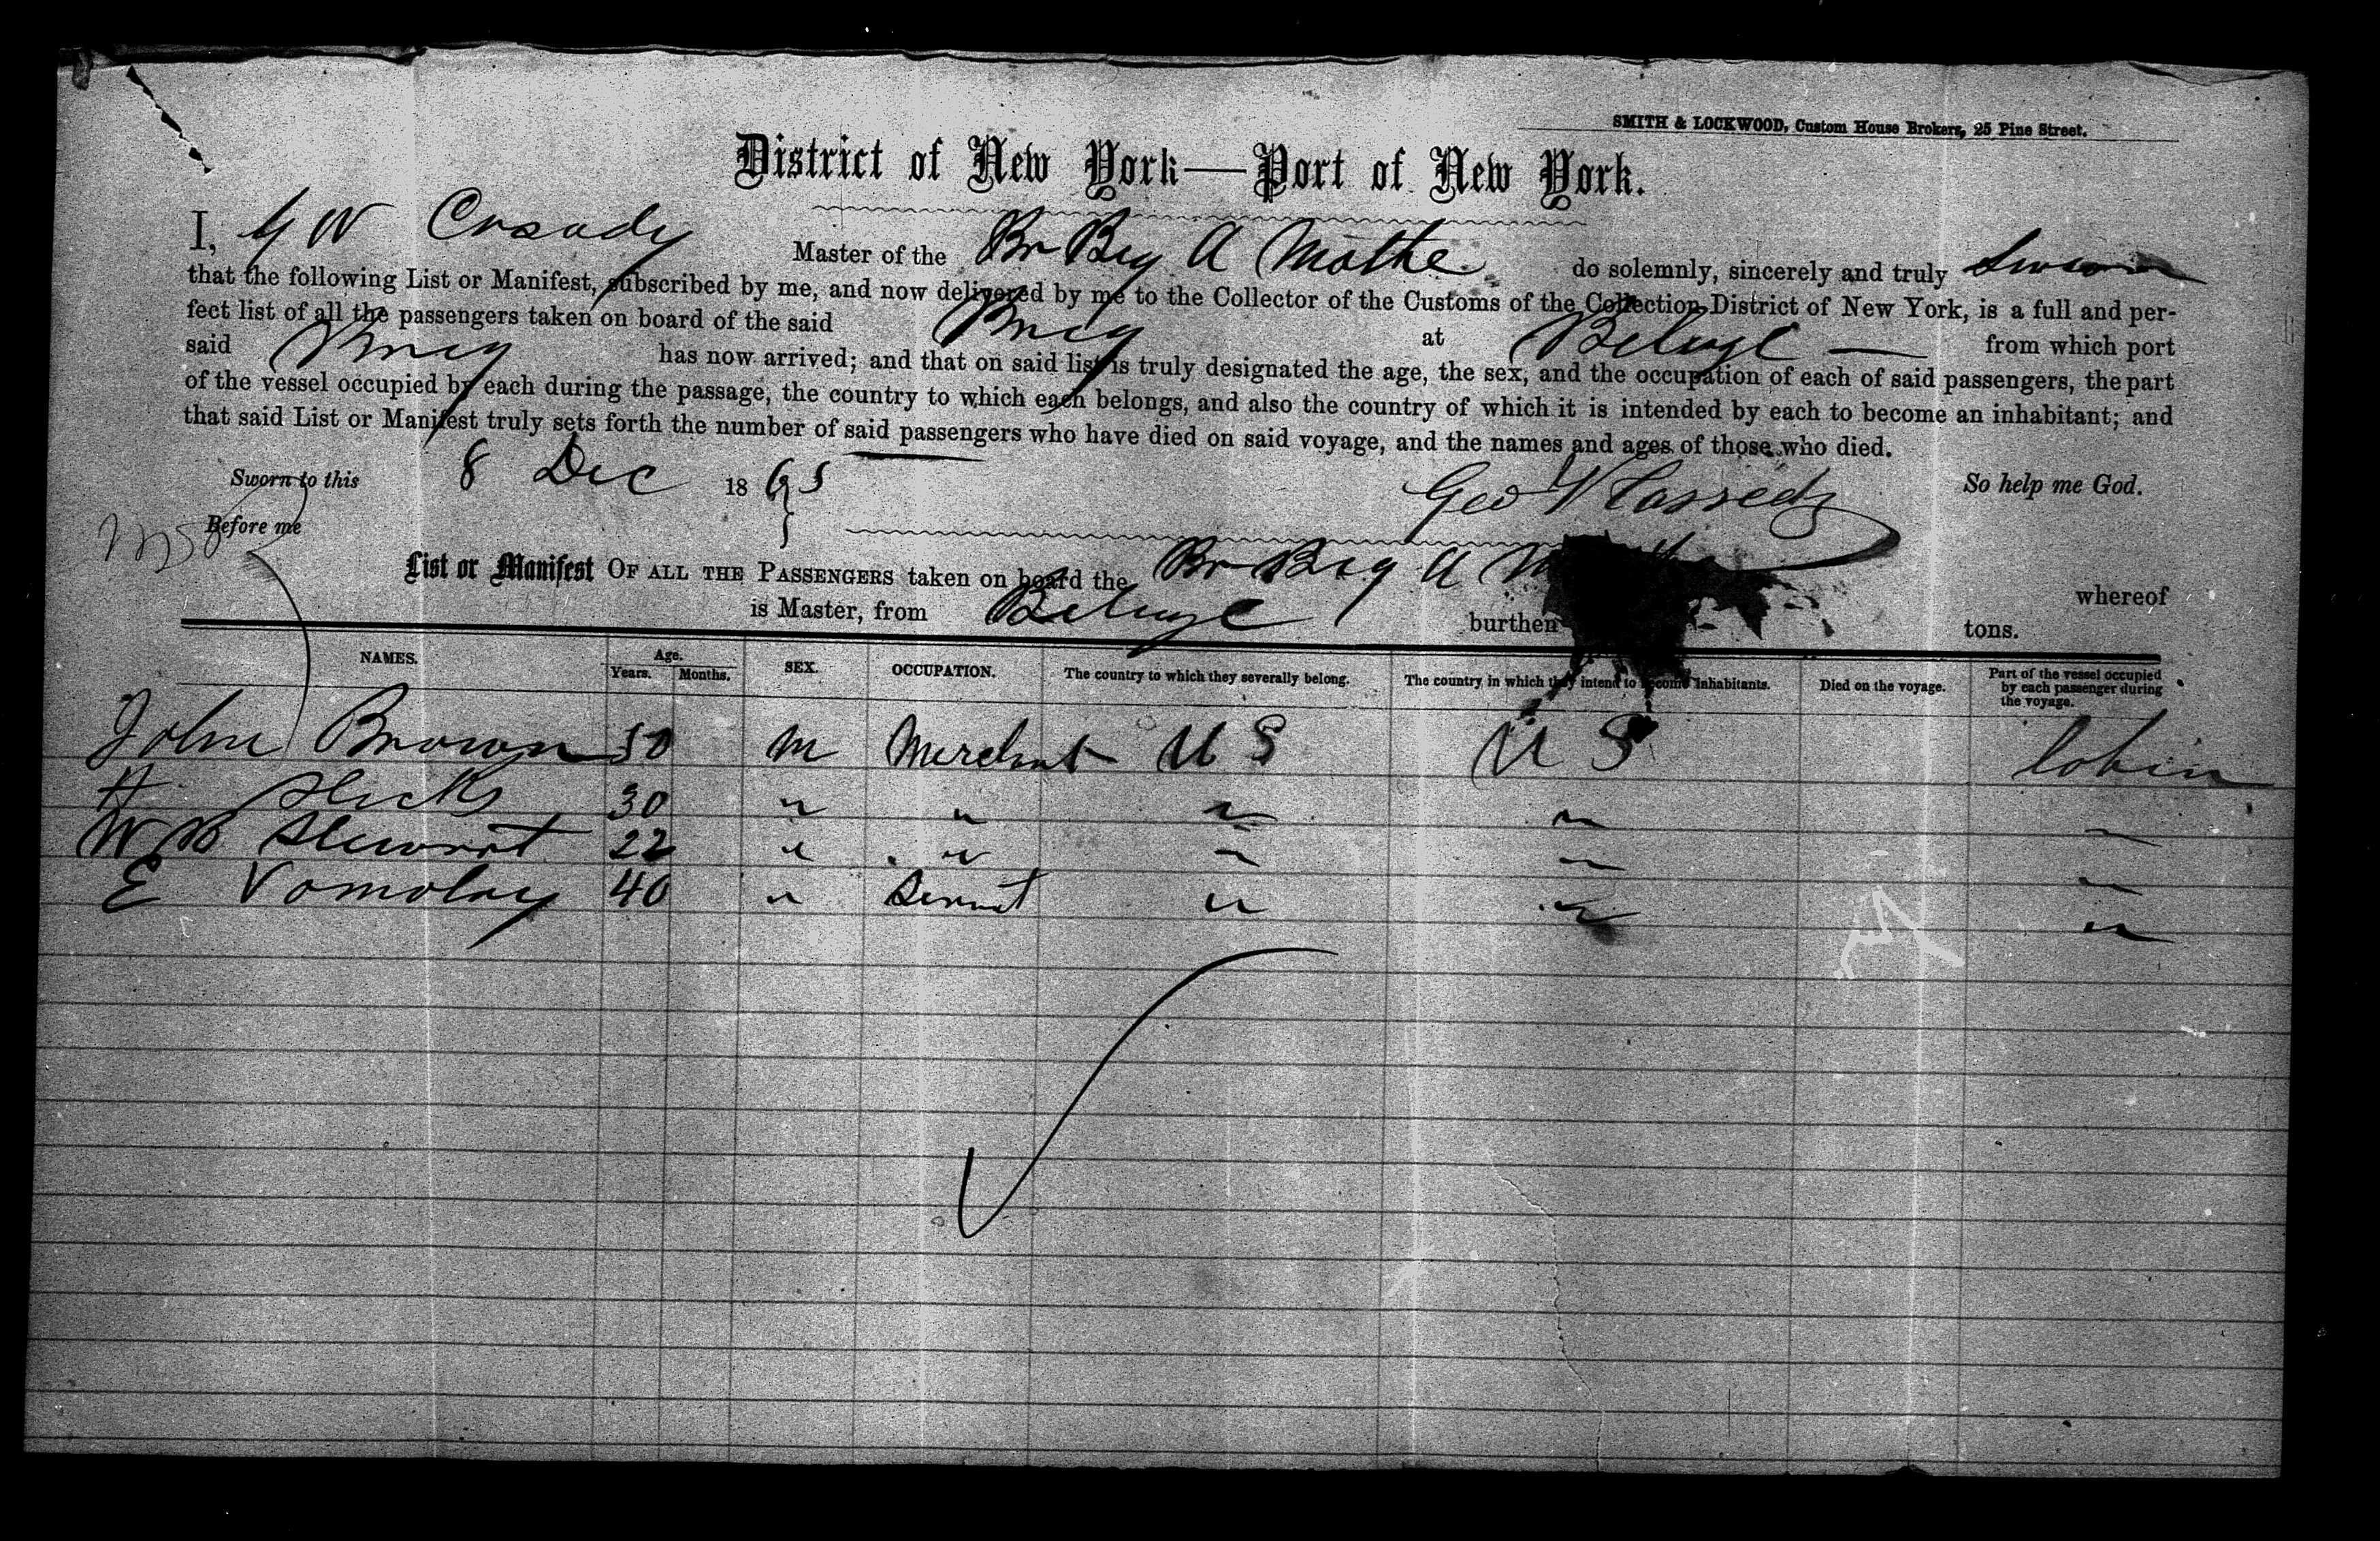 SMITH & LOCKWOOD, Custom House Brokers, 25 Pine Street.
District of New York—Port of New York.
I, G W Casady Master of the Br Brg A Mothe do solemnly, sincerely and truly swear
that the following List or Manifest, subscribed by me, and now delivered by me to the Collector of the Customs of the Collection District of New York, is a full and per-
fect list of all the passengers taken on board of the said Brig at Belize — from which port
said Brig has now arrived; and that on said list is truly designated the age, the sex, and the occupation of each of said passengers, the part
of the vessel occupied by each during the passage, the country to which each belongs, and also the country of which it is intended by each to become an inhabitant; and
that said List or Manifest truly sets forth the number of said passengers who have died on said voyage, and the names and ages of those who died.
Sworn to this 8 Dec 1865 So help me God.
Before me Geo W Cassedy
List or Manifest OF ALL THE PASSENGERS taken on board the Br Brg A whereof
is Master, from Belize burthen tons.
NAMES. Age. Years. Months. SEX. OCCUPATION. The country to which they severally belong. The country in which they intend to become inhabitants. Died on the voyage. Part of the vessel occupied by each passenger during the voyage.
John Brown 50 M Merchant U S U S Cabin
H Hicks 30 " " " " "
W B Stewart 22 " " " " "
E 40 " Servant " " "